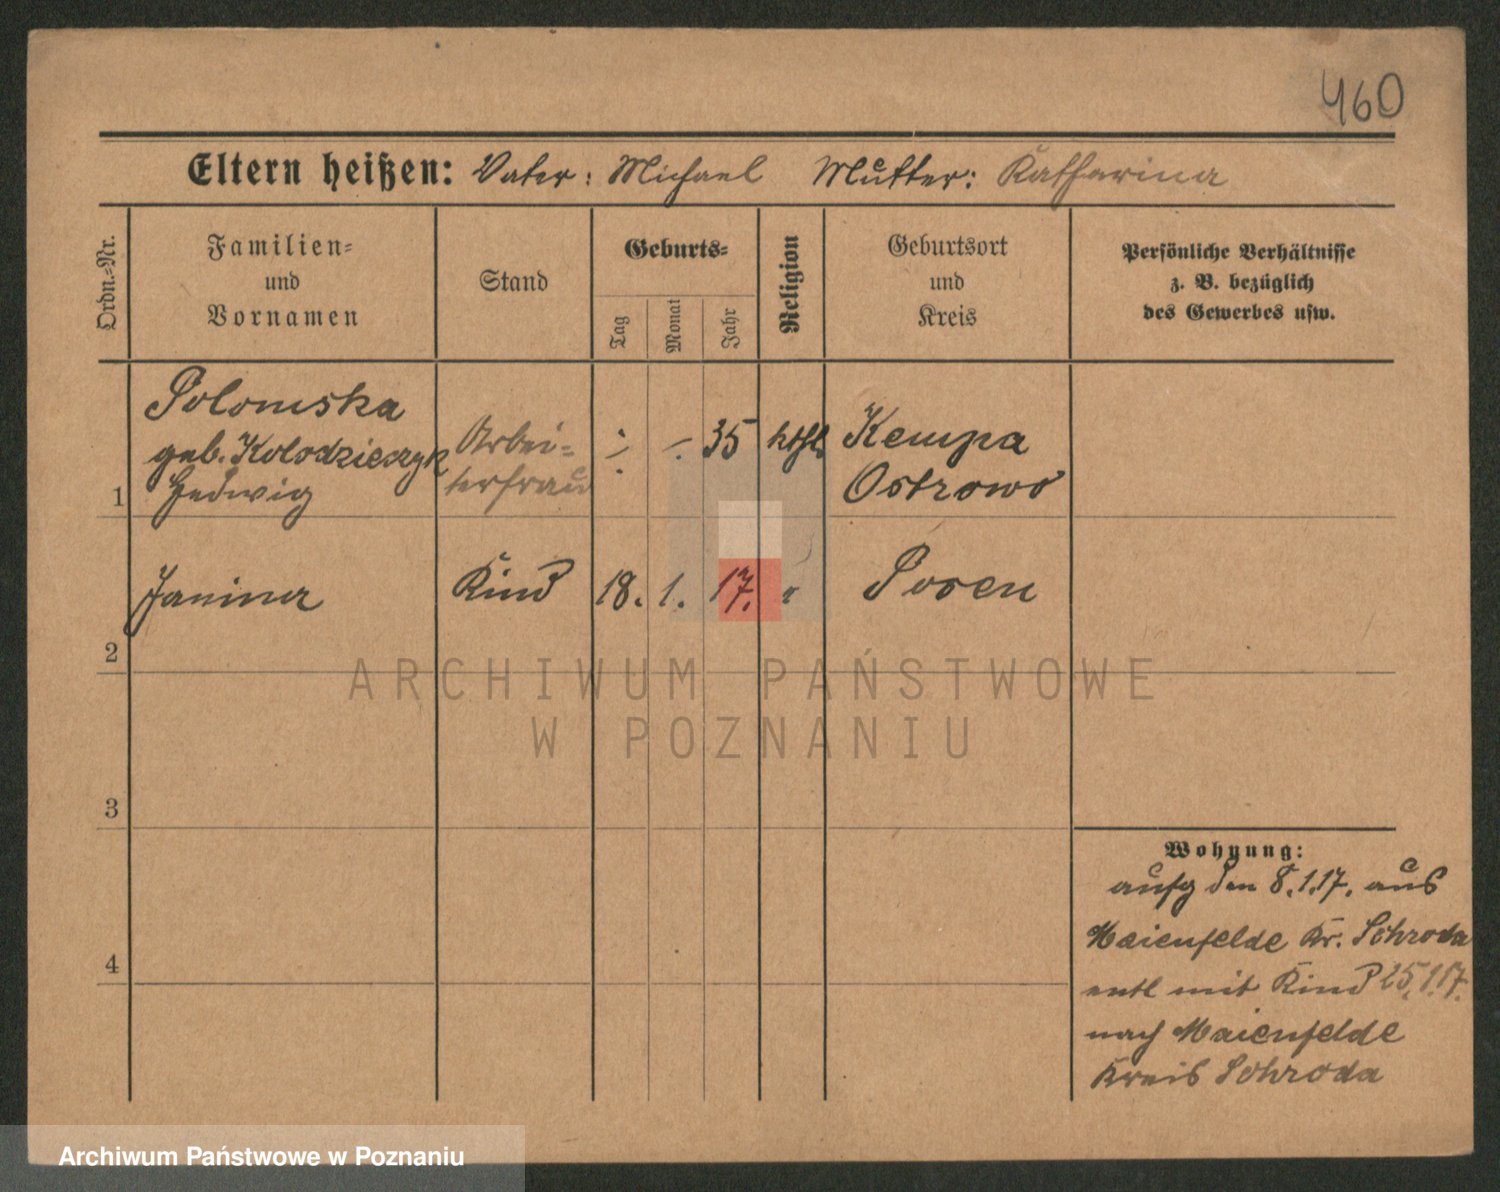 460
Eltern heißen: Vater: Michael Mutter: Katharina
Ordn.=Nr.
Familien=
und
Vornamen
Stand
Geburts=
Tag
Monat
Jahr
Religion
Geburtsort
und
Kreis
Persönliche Verhältnisse
z. B. bezüglich
des Gewerbes usw.
Polomska
geb. Kolodzieczyk
Hedwig
1
Arbei=
terfrau
÷ ÷ 35 kthl.
Kempa
Ostrowo
Janina Kind 18. 1. 17. " Posen
2
3
4
Wohnung:
aufg den 8.1.17. aus
Maienfelde Kr. Schroda
entl mit Kind 25.1.17.
nach Maienfelde
Kreis Schroda
ARCHIWUM PAŃSTWOWE
W POZNANIU
Archiwum Państwowe w Poznaniu